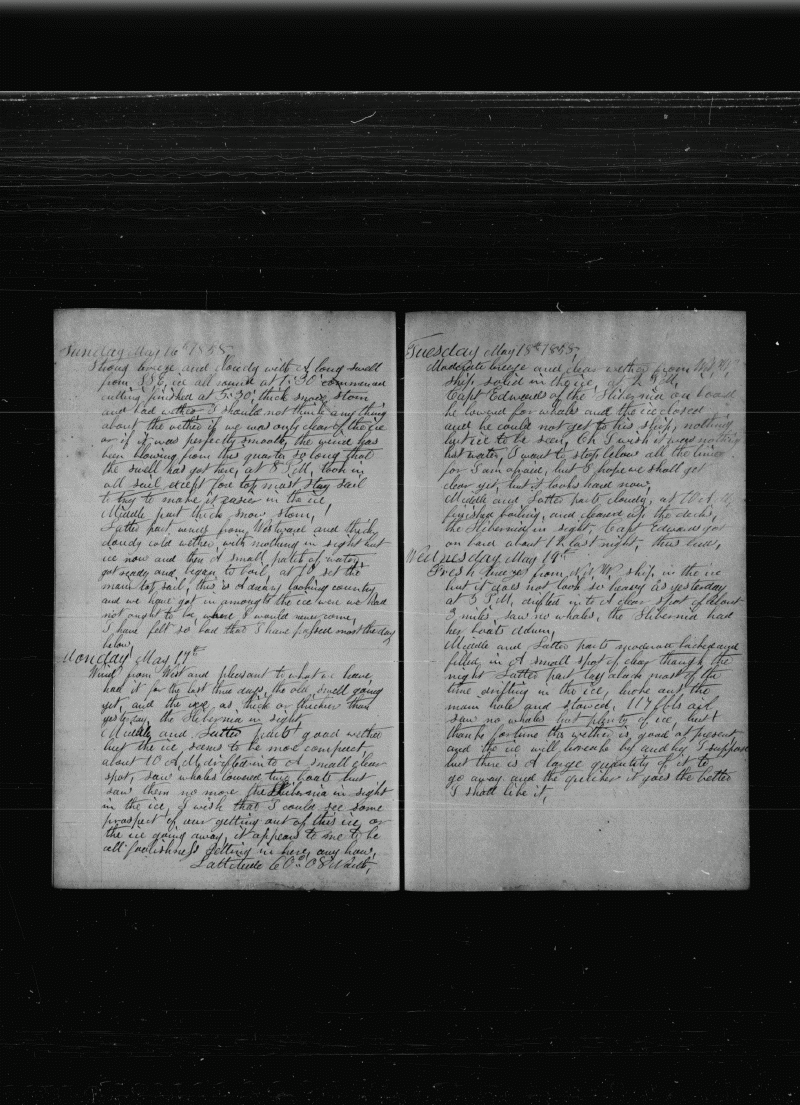 Sunday May 16th 1858
Strong breeze and cloudy with A long swell
from SSE, ice all round at 1.30 commenced
cutting finished at 5.30, thick snow storm
and bad wether I should not think any thing
about the wether if we was only clear of the ice
or if it was perfectly smooth, the wind has
been blowing from this quarter so long that
the swell has got here, at 8 P.M, took in
all sail except fore top mast stay sail
to try to make it easier in the ice,
Middle part thick snow storm,
Latter part wind from Westward and thick,
cloudy cold wether, with nothing in sight but
ice now and then A small patch of water,
got ready and began to boil, at 10 set the
main top sail, this is A dreary looking country
and we have got in amongst the ice were we had
not ought to be, where I would never come,
I have felt so bad that I have passed most the day
below,
Monday May 17th
Wind from West and pleasant to what we have
had it for the last three days, the old swell going
yet, and the ice as thick or thicker than
yesterday, the Hibernia in sight,
Middle and Latter parts good wether
but the ice seems to be more compact
about 10 A.M. drifted into A small clear
spot, saw whales lowered two boats but
saw them no more the Hibernia in sight
in the ice, I wish that I could see some
prospect of our getting out of this ice, or
the ice going away, it appears to me to be
all foolishness getting in here any how,
Lattitude 60° 08 North,
Tuesday May 18th 1858
Moderate breeze and clear wether from
ship solid in the ice, at 2 P.M,
Capt Edwards of the Hibernia on board
he lowered for whales and the ice closed
and he could not get to his ship, nothing
but ice to be seen, Oh I wish it was nothing
but water, I want to stop below all the time
for I am afraid, but I hope we shall get
clear yet, but it looks hard now,
Middle and Latter parts cloudy, at 10 A.M.
finished boiling, and cleared up the decks,
the Hibernia in sight, Capt Edwards got
on board about 12 last night, thus ends,
Wednesday May 19th
Fresh breeze from N.W. ship in the ice
but it does not look so heavy as yesterday
at 3 P.M, drifted in to A clear spot of about
3 miles, saw no whales, the Hibernia had
her boats down,
Middle and Latter parts moderate backed and
filled in A small spot of clear through the
night Latter part lay aback most of the
time drifting in the ice, broke out the
main hole and stowed, 117 bbls oil
saw no whales but plenty of ice, but
thanks fortune this wether is good at present
and the ice will break by and by I suppose
but there is A large quantity of it to
go away and the quicker it goes the better
I shall like it,